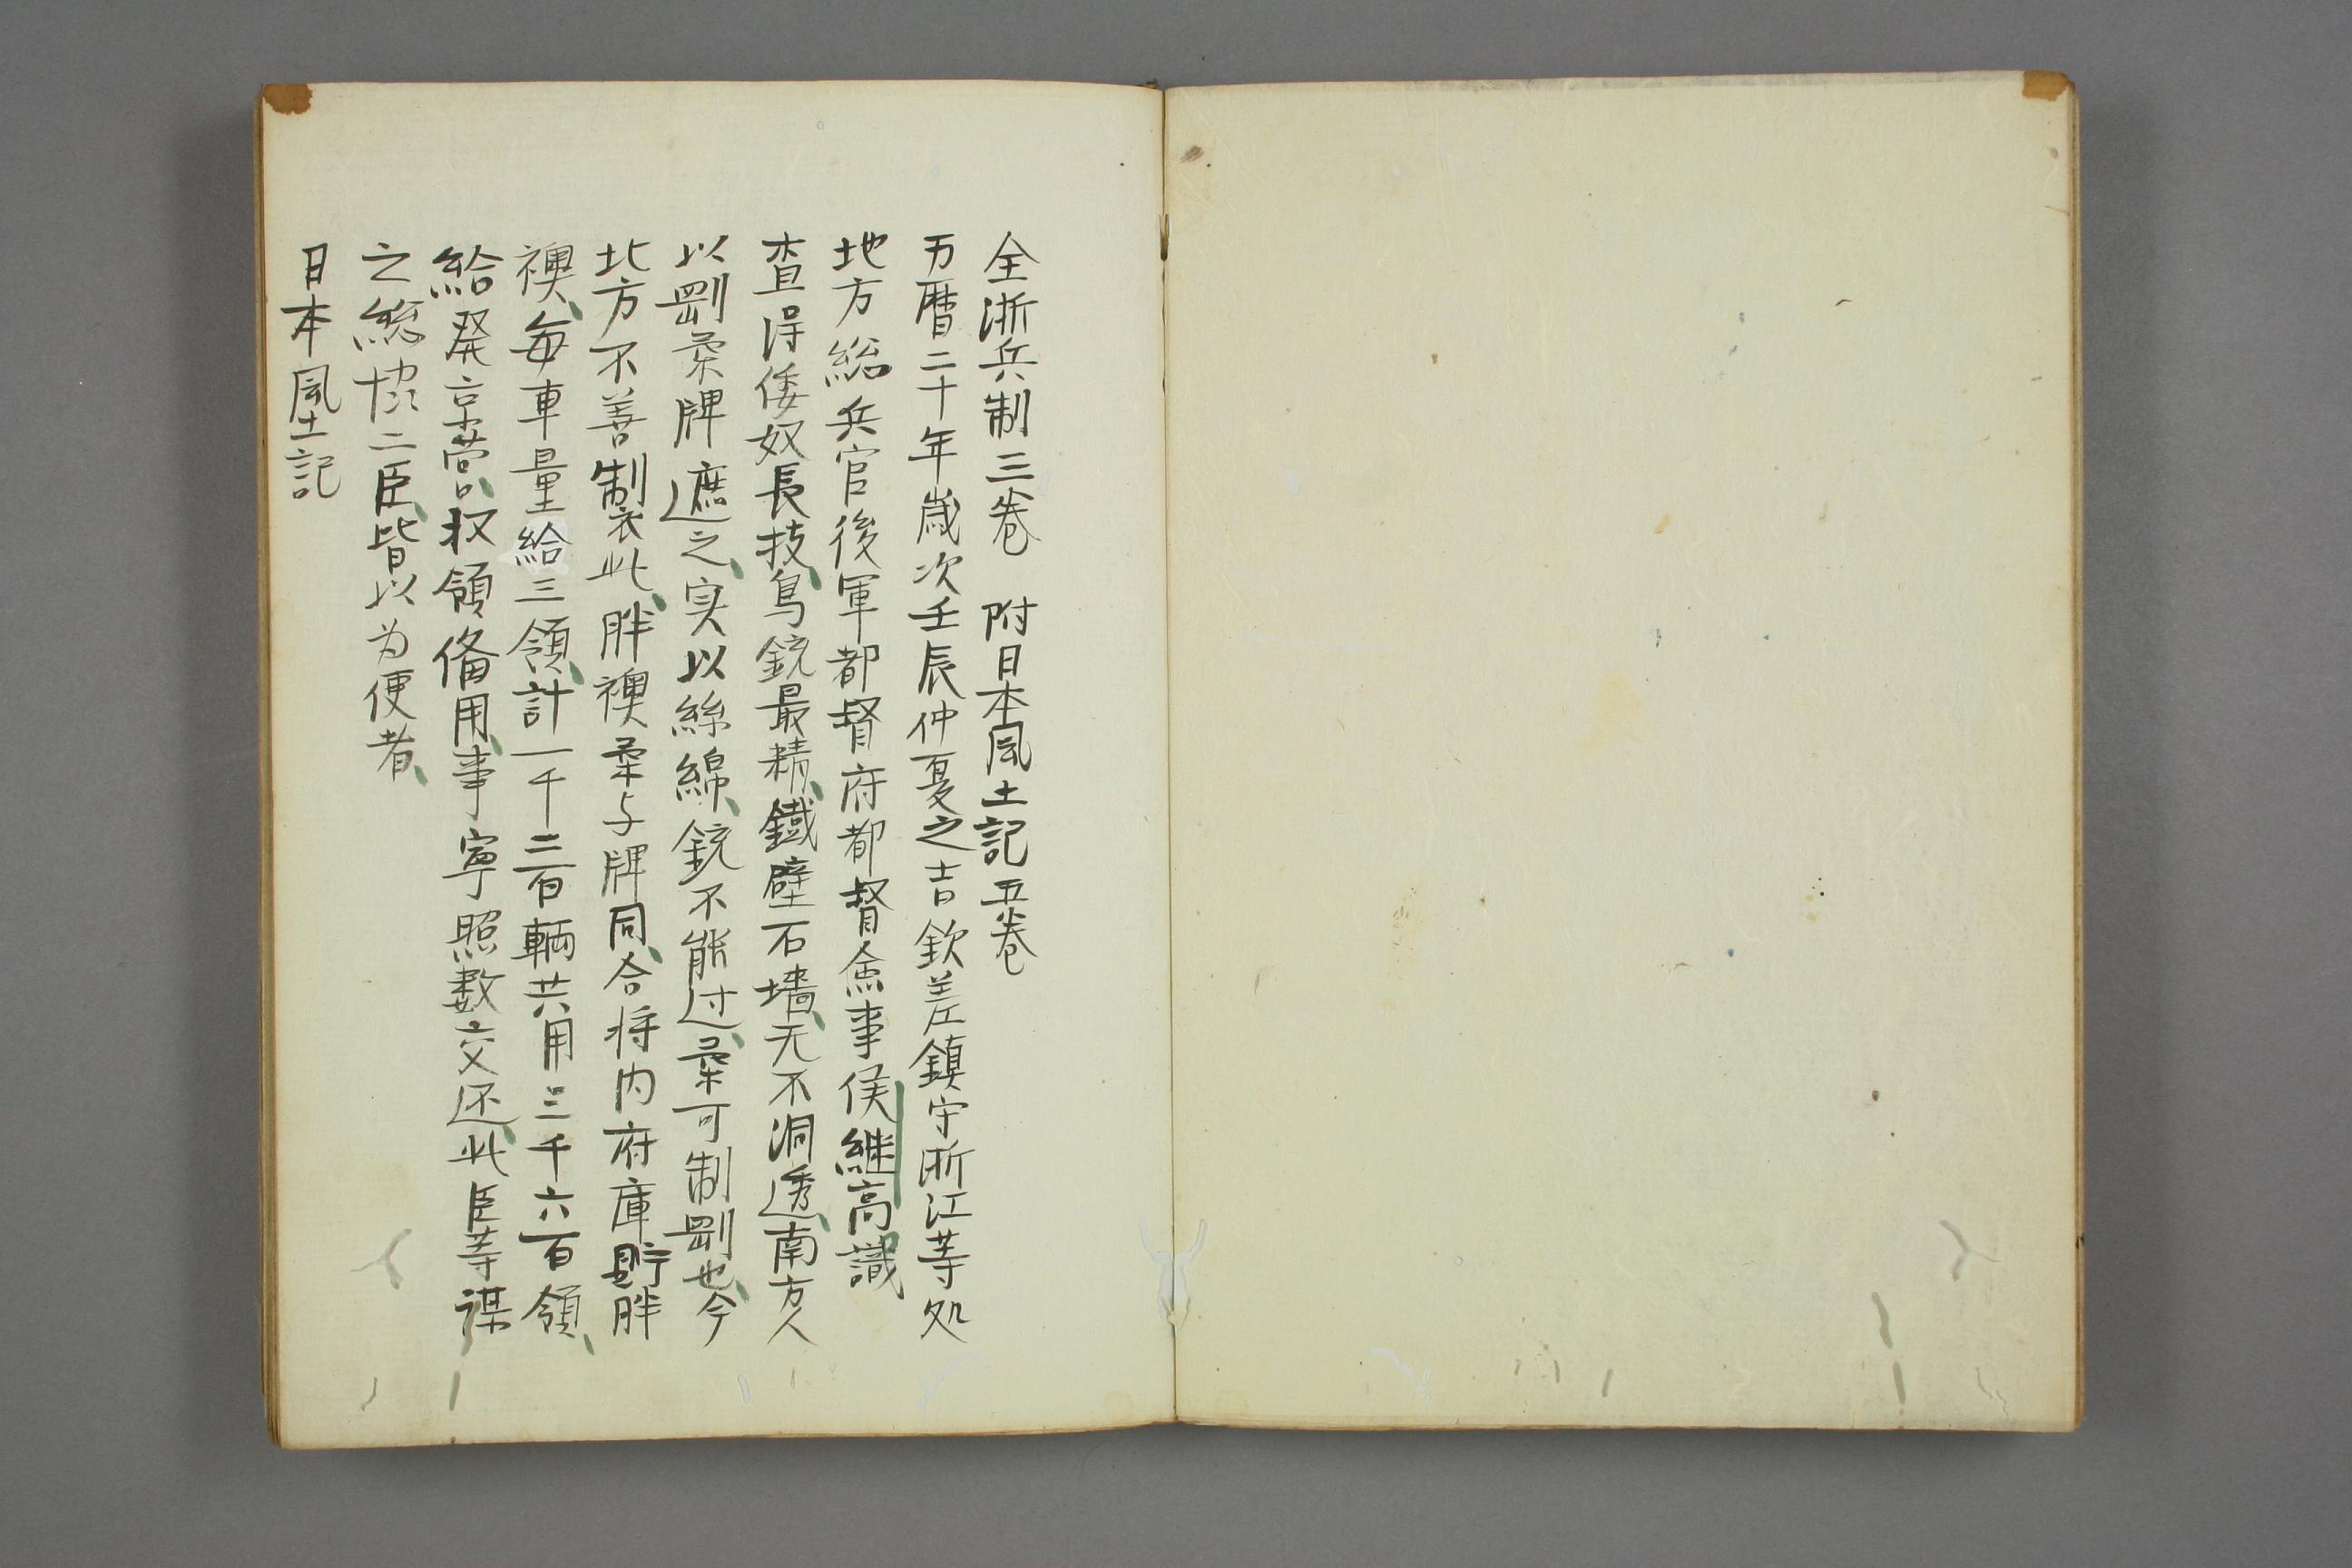 全浙兵制三卷　附日本風土記五卷
万暦二十年歳次壬辰仲夏之吉欽差鎮守浙江等処
地方総兵官後軍都督府都督僉事侯継高識
査得倭奴長技、鳥銃最精、鐵壁石墻、无不洞透、南方人
以剛柔牌遮之、実以絲綿、銃不能过、柔可制剛也、今
北方不善製此、胖襖柔与牌同、合将内府庫貯胖
襖、每車量給三領、計一千三百輌共用三千六百領、
給発京営、収領俻用、事寧照数交还、此臣等謀
之総協二臣、皆以为便者、
日本風土記